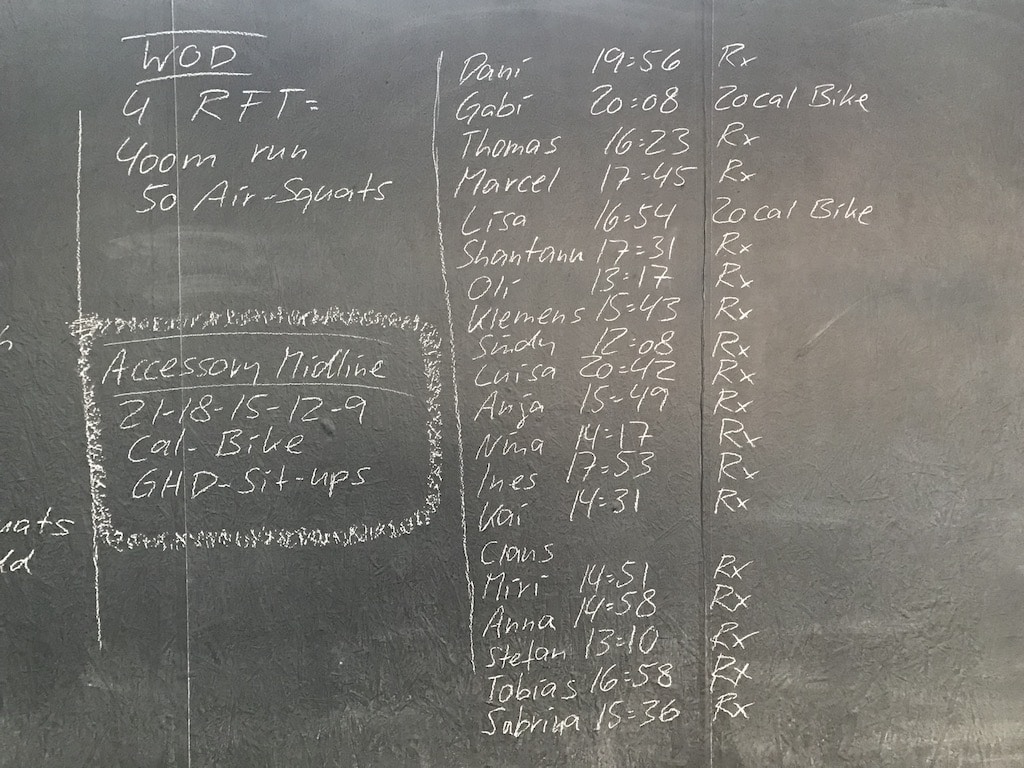 WOD
4 RFT:
400m run
50 Air-Squats
Accessory Midline
21-18-15-12-9
Cal. Bike
GHD-Sit-ups
uats
ld
Dani 19:56 Rx
Gabi 20:08 20cal Bike
Thomas 16:23 Rx
Marcel 17:45 Rx
Lisa 16:54 20cal Bike
Shantanu 17:31 Rx
Oli 13:17 Rx
Klemens 15:43 Rx
Sindy 12:08 Rx
Luisa 20:42 Rx
Anja 15:49 Rx
Nina 14:17 Rx
Ines 17:53 Rx
Kai 14:31 Rx
Claus
Miri 14:51 Rx
Anna 14:58 Rx
Stefan 13:10 Rx
Tobias 16:58 Rx
Sabrina 15:36 Rx